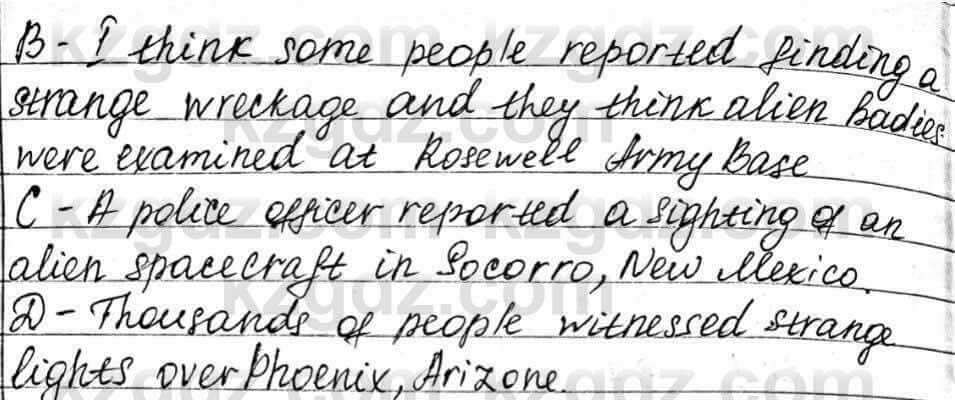 B - I think some people reported finding a
strange wreckage and they think alien badies
were examined at Rosewell Army Base
C - A police officer reported a sighting of an
alien spacecraft in Socorro, New Mexico.
D - Thousands of people witnessed strange
lights over Phoenix, Arizone.